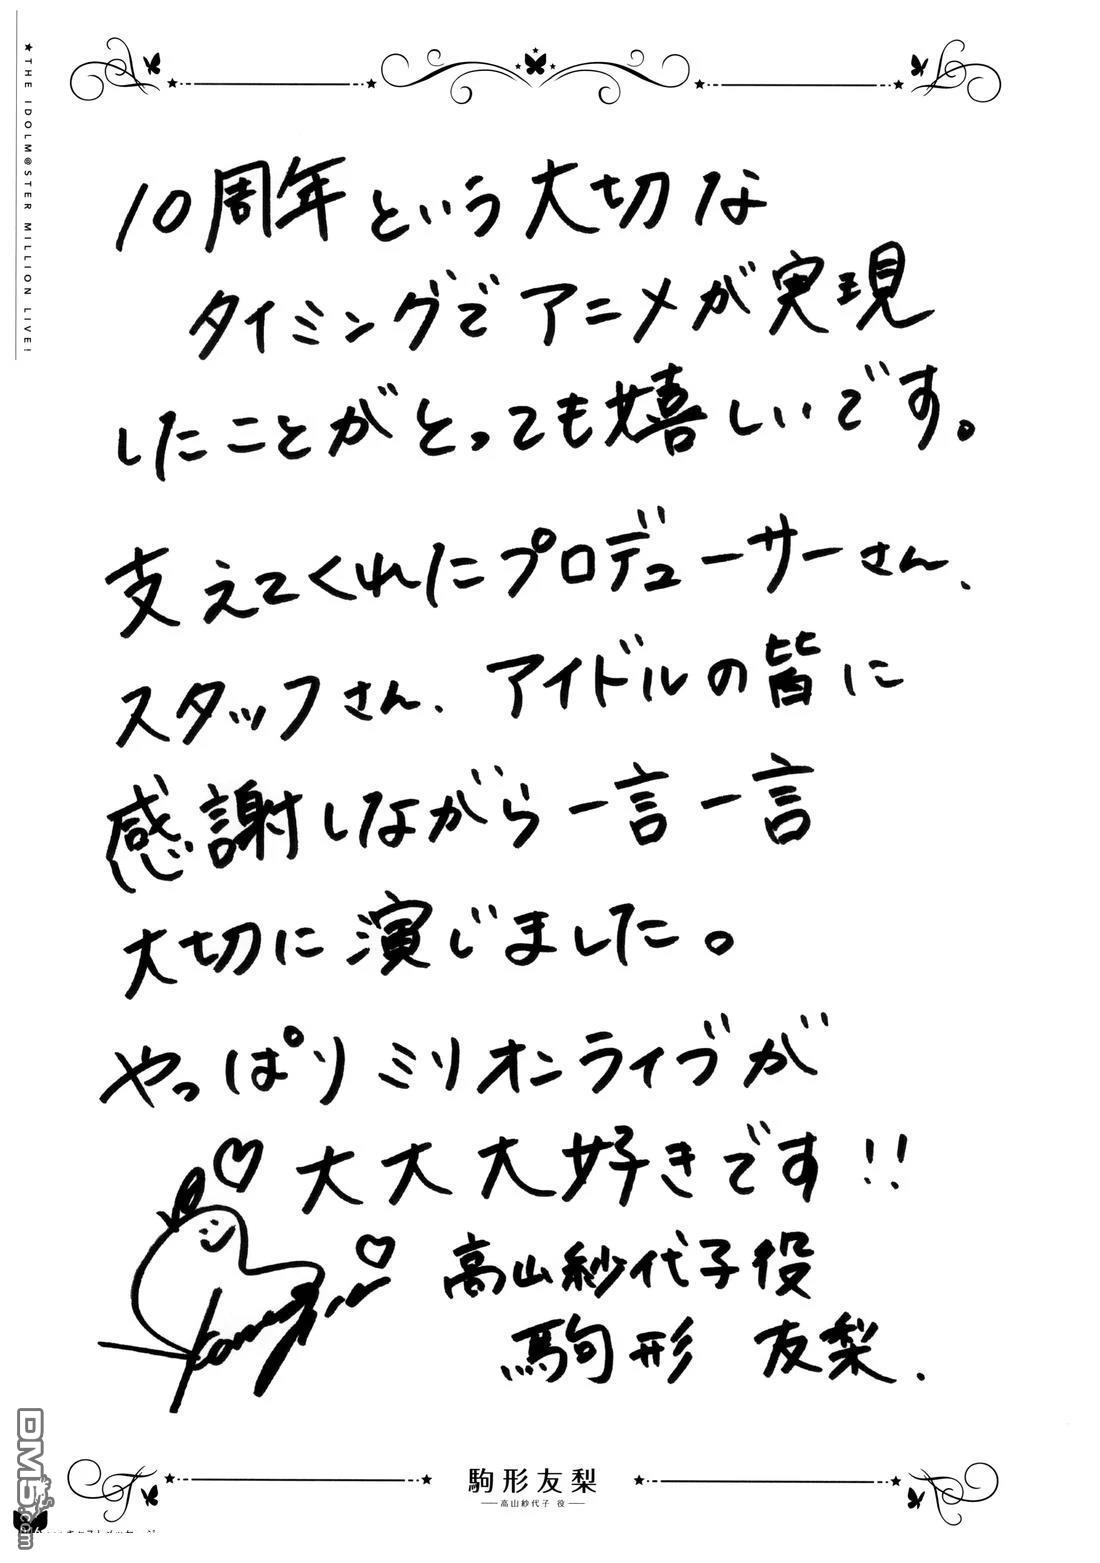 ★THE IDOLM@STER MILLION LIVE!
10周年という大切な
タイミングでアニメが実現
したことがとっても嬉しいです。
支えてくれたプロデューサーさん、
スタッフさん、アイドルの皆に
感謝しながら一言一言
大切に演じました。
やっぱりミリオンライブが
大大大好きです!!
高山紗代子役
駒形 友梨.
駒形友梨
高山紗代子 役
DM5.com